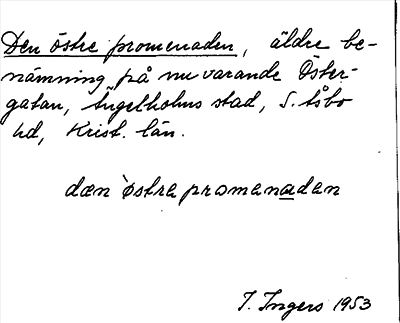 Den östre promenaden, äldre be-
nämning på nuvarande Öster-
gatan, Ängelholms stad, S. Åsbo
hd, Krist. län.
dæn `østrə promenadən
I. Ingers 1953